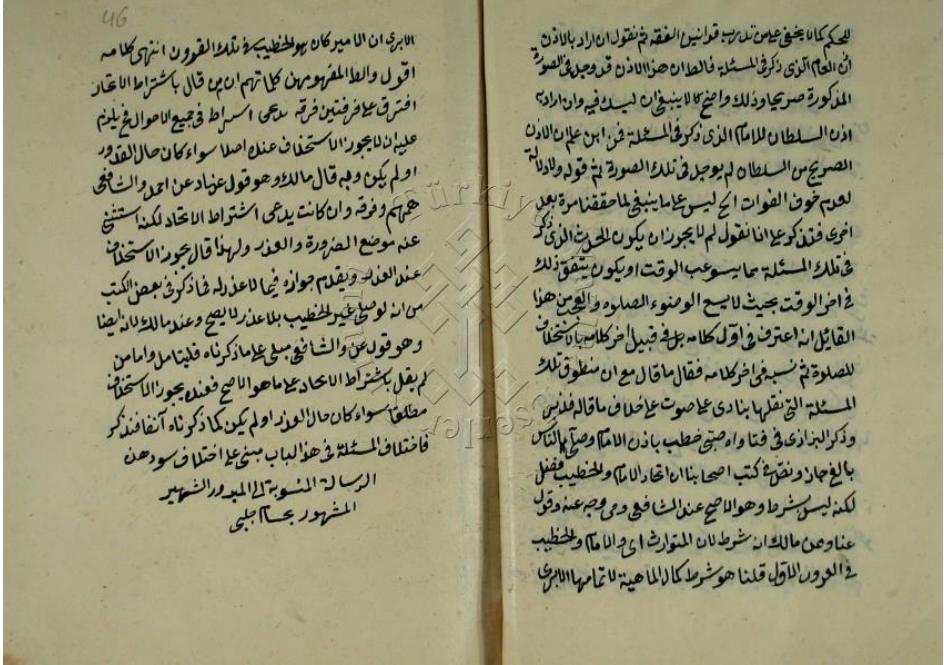 للحكم كما لا يخفى على من تدرب قوانين الفقه ثم نقول ان اراد بالاذن
اذن العام الذى ذكر فى المسئلة فالظ ان هذا الاذن قد وجد فى الصورة
المذكورة صريحا وذلك واضح كا لا ينبغى ان ليك فيه وان اراد به
اذن السلطان للامام الذى ذكر فى المسئلة فمن اين علم ان الاذن
الصريح من السلطان لم يوجد فى تلك الصورة ثم قوله ولا دلالة
لعدم خوف الفوات الخ ليس على ما ينبغى لما حققنا مرة بعد
اخرى فتذكر على انا نقول لم لا يجوز ان يكون الحدث الذى ذكر
فى تلك المسئلة مما يسوعب الوقت او يكون يتفق ذلك
فى اخر الوقت بحيث لا يسع الوضوء الصلوة والعجب من هذا
القائل انه اعترف فى اول كلامه بل فى قبيل اخر كلامه بالاستخلاف
للصلوة ثم نسبه فى اخر كلامه فقال ما قال مع ان منطوق تلك
المسئلة التى نقلها ينادى على صوت على خلاف ما قاله فتدبر
وذكر البزازى فى فتاواه صبى خطب باذن الامام وصلى بالناس
بالغ جاز ونص فى كتب اصحابنا ان اتحاد الامام والخطيب
لكنه ليس شرط وهو الاصح عند الشافعى وفى وجه عنه وقول
عنا وعن مالك انه شرط لان المتوارث اى والامام والخطيب
فى القرون الاول قلنا هو شرط كمال الماهية لا تمامها الا يرى
الا يرى ان الامير كان هو الخطيب فى تلك القرون انتهى كلامه
اقول والظ المفهوم من كلماتهم ان من قال باشتراط الاتحاد
افترق على فرقتين فرقة تدعى اشتراط فى جميع الاحوال فح يلزم
عليه ان لا يجوز الاستخلاف عنده اصلا سواء كان حال العذر
او لم يكن وبه قال مالك وهو قول عن احمد والشافعى
وفرقة وان كانت يدعى اشتراط الاتحاد لكنه استثنى
عنه موضع الضرورة والعذر ولهذا قال يجوز الاستخلاف
عند العذر وبعدم جوازه فيما لا عذر له فما ذكر فى بعض الكتب
من انه لو صلى غير الخطيب بلا عذر لا يصح وعند مالك لا ايضا
وهو قول عن والشافعى مبنى على ما ذكرناه فليتامل واما من
لم يقل باشتراط الاتحاد على ما هو الاصح فعنده يجوز الاستخلاف
مطلقا سواء كان حال العذر او لم يكن كما ذكرناه آنفا فتذكر
فاختلاف المسئلة فى هذا الباب مبنى على اختلاف
الرسالة المنسوبة الى الشهير
المشهور بحسام چلبى
46